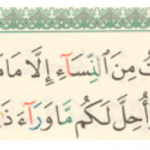 مِنَ ٱلنِّسَآءِ إِلَّا مَا
وَأُحِلَّ لَكُم مَّا وَرَآءَ